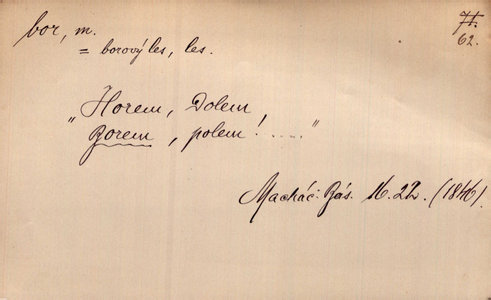 bor, m.
71.
62.
= borový les, les.
"Horem, Dolem
Borem, polem! ....."
Macháč: Bás. 16.22. (1846).